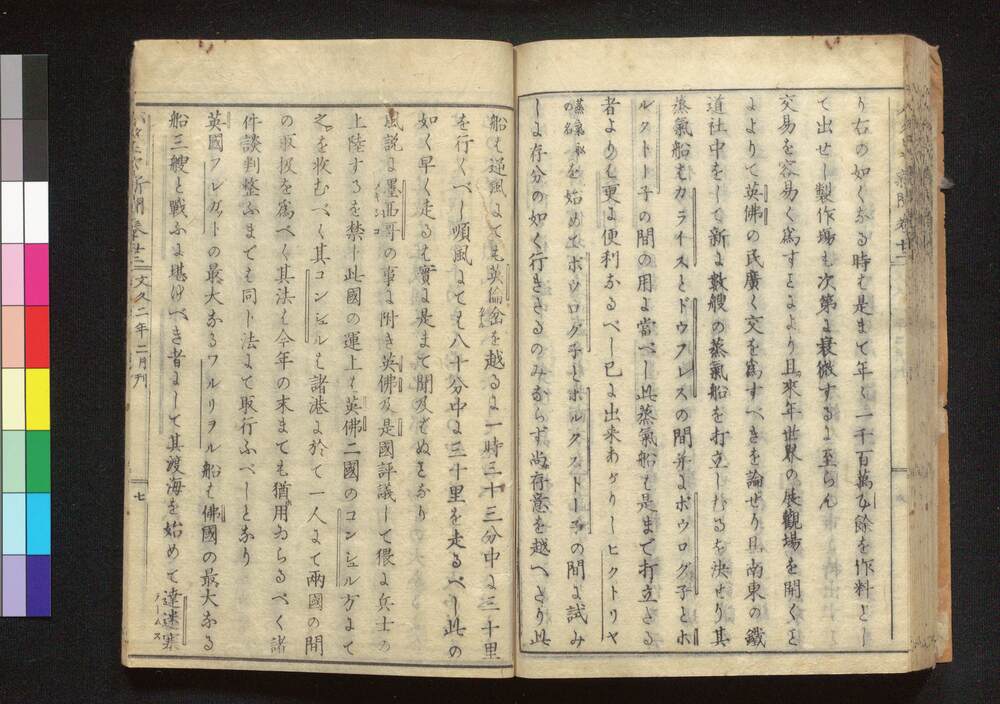 り右の如くなる時も是まて年々一千百萬ひ餘を作料とし
て出せし製作場も次第に衰微するに至らん
交易を容易く為すとにより且來年世界の展觀場を開くと
によりて英佛の民廣く交を為すべきを論せり且南東の鐵
道社中をして新に數艘の蒸氣船を打立しむるを決せり其
蒸氣船もカライスとドウフレスの間并にボウログ子とホ
ルクトー子の間の用に當べし此蒸氣船も是まで打立さる
者よりも更に便利なるべし已に出来あがりしヒクトリヤ
蒸氣船の名を始めてボウログ子とホルクストー子の間に試み
しに存分の如く行きさるのみならず尚存意を越へたり此
船も逆風にても英倫岔を越るに一時三十三分中に三十里
を行くべし順風にても八十分中に三十里を走るべし此の
如く早く走るも實に是まて聞及もぬとなり
風説に墨西哥の事に附き英佛及是國評議して猥に兵士の
上陸するを禁し此國の運上も英佛二國のコンシュル方にて
之を收むべく其コンシュルも諸港に於て一人にて兩國の間
の取扱を為べく其法も今年の末まても猶用ゐらるべく諸
件談判整ふまでも同し法にて取行ふべしとなり
英國フレガットの最大なるワルリヲル船も佛國の最大なる
船三艘と戰ふに堪けべき者にして其渡海を始めて達迷塞
テームス
新聞 卷廿三 文久二年二月刊
七